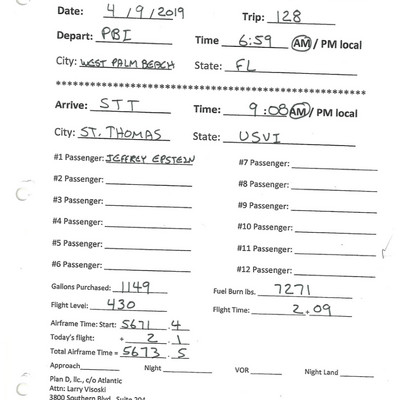 Date: 4/9/2019 Trip: 128
Depart: PBI Time 6:59 AM / PM local
City: WEST PALM BEACH State: FL
************************************************
Arrive: STT Time: 9:08 AM / PM local
City: ST. THOMAS State: USVI
#1 Passenger: JEFFREY EPSTEIN #7 Passenger:
#2 Passenger: #8 Passenger:
#3 Passenger: #9 Passenger:
#4 Passenger: #10 Passenger:
#5 Passenger: #11 Passenger:
#6 Passenger: #12 Passenger:
Gallons Purchased: 1149 Fuel Burn lbs. 7271
Flight Level: 430 Flight Time: 2.09
Airframe Time: Start: 5671 .4
Today's flight: + 2 .1
Total Airframe Time = 5673 .5
Approach Night VOR Night Land
Plan D, llc., c/o Atlantic
Attn: Larry Visoski
3800 Southern Blvd., Suite 204